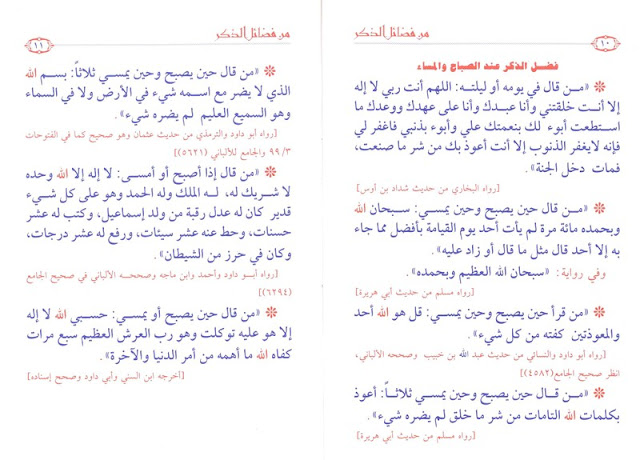 من فضائل الذكر
١٠
فضل الذكر عند الصباح والمساء
❊ «من قال في يومه أو ليلته: اللهم أنت ربي لا إله
إلا أنت خلقتني وأنا عبدك وأنا على عهدك ووعدك ما
استطعت أبوء لك بنعمتك علي وأبوء بذنبي فاغفر لي
فإنه لايغفر الذنوب إلا أنت أعوذ بك من شر ما صنعت،
فمات دخل الجنة».
[رواه البخاري من حديث شداد بن أوس]
❊ «من قال حين يصبح وحين يمسي: سبحان الله
وبحمده مائة مرة لم يأت أحد يوم القيامة بأفضل مما جاء
به إلا أحد قال مثل ما قال أو زاد عليه».
وفي رواية: «سبحان الله العظيم وبحمده».
[رواه مسلم من حديث أبي هريرة]
❊ «من قرأ حين يصبح وحين يمسي: قل هو الله أحد
والمعوذتين كفته من كل شيء».
[رواه أبو داود والنسائي من حديث عبد الله بن خبيب وصححه الألباني،
انظر صحيح الجامع(٤٥٨٢)]
❊ «من قال حين يصبح وحين يمسي ثلاثاً: أعوذ
بكلمات الله التامات من شر ما خلق لم يضره شيء».
[رواه مسلم من حديث أبي هريرة]
من فضائل الذكر
١١
❊ «من قال حين يصبح وحين يمسي ثلاثاً: بسم الله
الذي لا يضر مع اسمه شيء في الأرض ولا في السماء
وهو السميع العليم لم يضره شيء».
[رواه أبو داود والترمذي من حديث عثمان وهو صحيح كما في الفتوحات
٩٩/٣ والجامع للألباني (٥٦٢١)]
❊ «من قال إذا أصبح أو أمسى: لا إله إلا الله وحده
لا شريك له، له الملك وله الحمد وهو على كل شيء
قدير كان له عدل رقبة من ولد إسماعيل، وكتب له عشر
حسنات، وحط عنه عشر سيئات، ورفع له عشر درجات،
وكان في حرز من الشيطان».
[رواه أبو داود وأحمد وابن ماجه وصححه الألباني في صحيح الجامع
(٦٢٩٤)]
❊ «من قال حين يصبح أو يمسي: حسبي الله لا إله
إلا هو عليه توكلت وهو رب العرش العظيم سبع مرات
كفاه الله ما أهمه من أمر الدنيا والآخرة».
[أخرجه ابن السني وأبي داود وصحح إسناده]